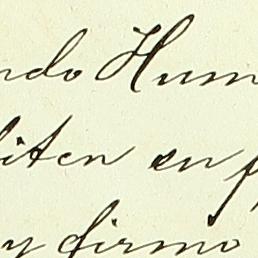 ndo Hum
iten en p
y firmo